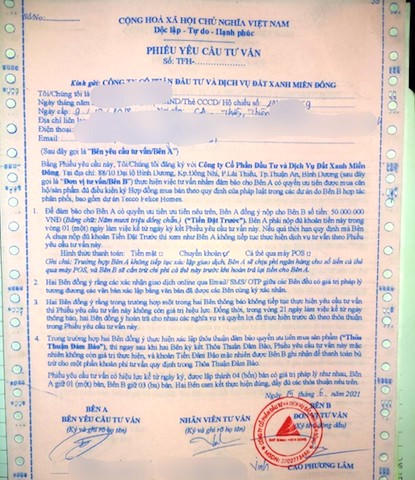 Số No:
CỘNG HOÀ XÃ HỘI CHỦ NGHĨA VIỆT NAM
Độc lập - Tự do - Hạnh phúc
PHIẾU YÊU CẦU TƯ VẤN
Số: TFH-
Kính gửi: CÔNG TY CỔ PHẦN ĐẦU TƯ VÀ DỊCH VỤ ĐẤT XANH MIỀN ĐÔNG
Tôi/Chúng tôi là
Ngày tháng năm CMND/Thẻ CCCD/ Hộ chiếu số:
Ngày cấp:
Địa chỉ liên
Điện thoại:
Email:
(Sau đây gọi là "Bên yêu cầu tư vấn/Bên A")
Bằng Phiếu yêu cầu này, Tôi/Chúng tôi đăng ký với Công ty Cổ Phần Đầu Tư và Dịch Vụ Đất Xanh Miền
Đông, Tại địa chỉ: 88/10 Đại lộ Bình Dương, Kp.Đông Nhì, P.Lái Thiêu, Tp.Thuận An, Bình Dương (sau đây
gọi là "Đơn vị tư vấn/Bên B") thực hiện việc tư vấn nhằm đảm bảo cho Bên A có quyền ưu tiên được mua căn
hộ/sản phẩm đủ điều kiện ký Hợp đồng mua bán theo quy định của pháp luật trong các dự án do Bên B hợp tác
phân phối, bao gồm dự án Tecco Felice Homes.
1. Để đảm bảo cho Bên A có quyền ưu tiên nêu trên, Bên A đồng ý nộp cho Bên B số tiền: 50.000.000
VNĐ (Bằng chữ: Năm mươi triệu đồng chẵn.) ("Tiền Đặt Trước"). Bên A phải nộp đủ khoản tiền này trong
vòng 01 (một) ngày làm việc kể từ ngày ký kết Phiếu yêu cầu tư vấn này. Nếu quá thời hạn quy định mà Bên
A chưa nộp đủ khoản Tiền Đặt Trước thì xem như Bên A không tiếp tục thực hiện dịch vụ tư vấn theo Phiếu
yêu cầu tư vấn này.
Hình thức thanh toán: Tiền mặt Chuyển khoản Cà thẻ qua máy POS
Ghi chú: Trường hợp Bên A không tiếp tục xác lập giao dịch, Bên A sẽ chịu phí ngân hàng cho số tiền cà thẻ
qua máy POS, và Bên B sẽ cấn trừ chi phí cà thẻ này trước khi hoàn trả lại tiền cho Bên A.
2. Hai Bên đồng ý rằng các xác nhận giao dịch online qua Email/ SMS/ OTP giữa các Bên đều có giá trị pháp lý
tương đương các văn bản xác lập bằng văn bản đã được các Bên cùng ký xác nhận.
3. Hai Bên đồng ý rằng trong trường hợp một trong hai Bên thông báo không tiếp tục thực hiện yêu cầu tư vấn
thì Phiếu yêu cầu tư vấn này không còn giá trị hiệu lực. Đồng thời, trong vòng 21 ngày làm việc kể từ ngày
thông báo, hai Bên đồng ý hoàn trả cho nhau các nghĩa vụ và quyền lợi đã thực hiện trước đó theo thỏa thuận
trong Phiếu yêu cầu tư vấn này.
4. Trong trường hợp hai Bên đồng ý thực hiện xác lập thỏa thuận đảm bảo quyền ưu tiên mua sản phẩm ("Thỏa
Thuận Đảm Bảo"), thì ngay sau khi hai Bên ký kết Thỏa Thuận Đảm Bảo, Phiếu yêu cầu tư vấn này mặc
nhiên không còn giá trị thực hiện, và khoản Tiền Đảm Bảo mặc nhiên được Bên B ghi nhận để thanh toán bù
trừ cho một phần khoản tư vấn quy định trong Thỏa Thuận Đảm Bảo.
Phiếu yêu cầu tư vấn này có hiệu lực kể từ ngày ký, được lập thành 04 (bốn) bản có giá trị pháp lý như nhau, Bên
A giữ 01 (một) bản, Bên B giữ 03 (ba) bản. Hai Bên cam kết thực hiện đúng, đầy đủ các thỏa thuận nêu trên.
Ngày 15 tháng 6, 2021
BÊN A BÊN B
BÊN YÊU CẦU TƯ VẤN NHÂN VIÊN TƯ VẤN ĐƠN VỊ TƯ VẤN
(Ký và ghi rõ họ tên) (Ký và ghi rõ họ tên) (Ký tên, đóng dấu)
CAO PHƯƠNG LÂM